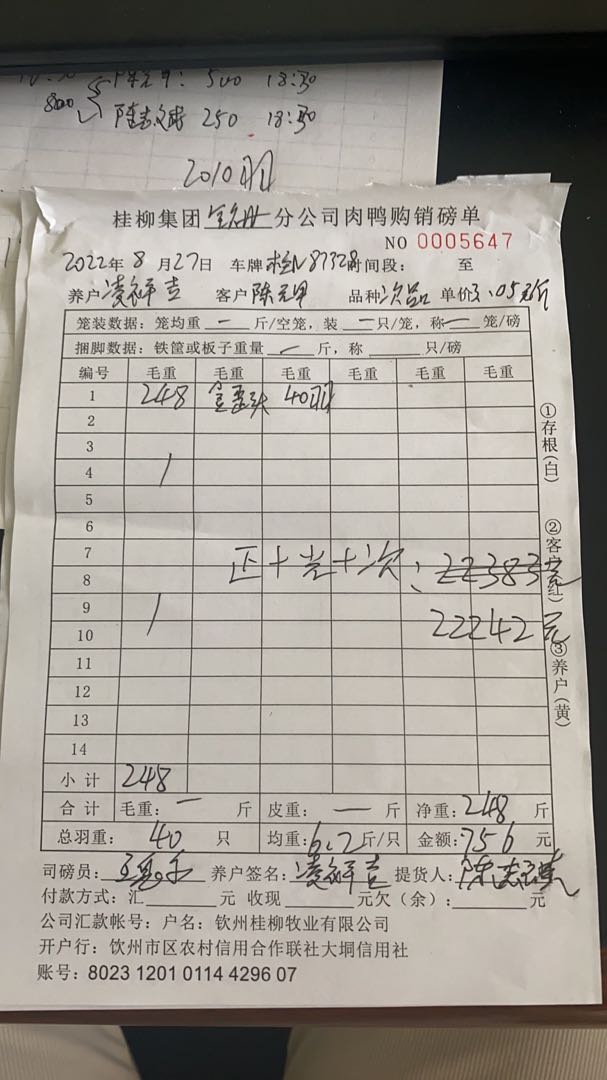 500 18:30
800
250 18:30
2010羽
桂柳集团 分公司肉鸭购销磅单
NO 0005647
2022年8月27日 车牌 时间段: 至
养户 凌祥吉 客户 陈元甲 品种 次品 单价3.05元/斤
笼装数据: 笼均重 一 斤/空笼, 装 一 只/笼, 称 一 笼/磅
捆脚数据: 铁筐或板子重量 一 斤, 称 只/磅
编号 毛重 毛重 毛重 毛重 毛重 毛重
1 248 40羽
2
3
4
5
6
7
正+光+次: 22383元
8
9
22242元
10
11
12
13
14
小计 248
合计 毛重: 一 斤 皮重: 一 斤 净重: 248 斤
总羽重: 40 只 均重: 6.2 斤/只 金额: 756 元
司磅员: 养户签名: 凌祥吉 提货人: 陈
付款方式: 汇 元 收现 元欠(余): 元
公司汇款帐号: 户名: 钦州桂柳牧业有限公司
开户行: 钦州市区农村信用合作联社大垌信用社
账号: 8023 1201 0114 4296 07
①存根(白)
②客户(红)
③养户(黄)